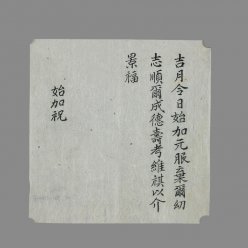 吉月令日始加元服棄爾幼
志順爾成德壽考維祺以介
景福
始加祝